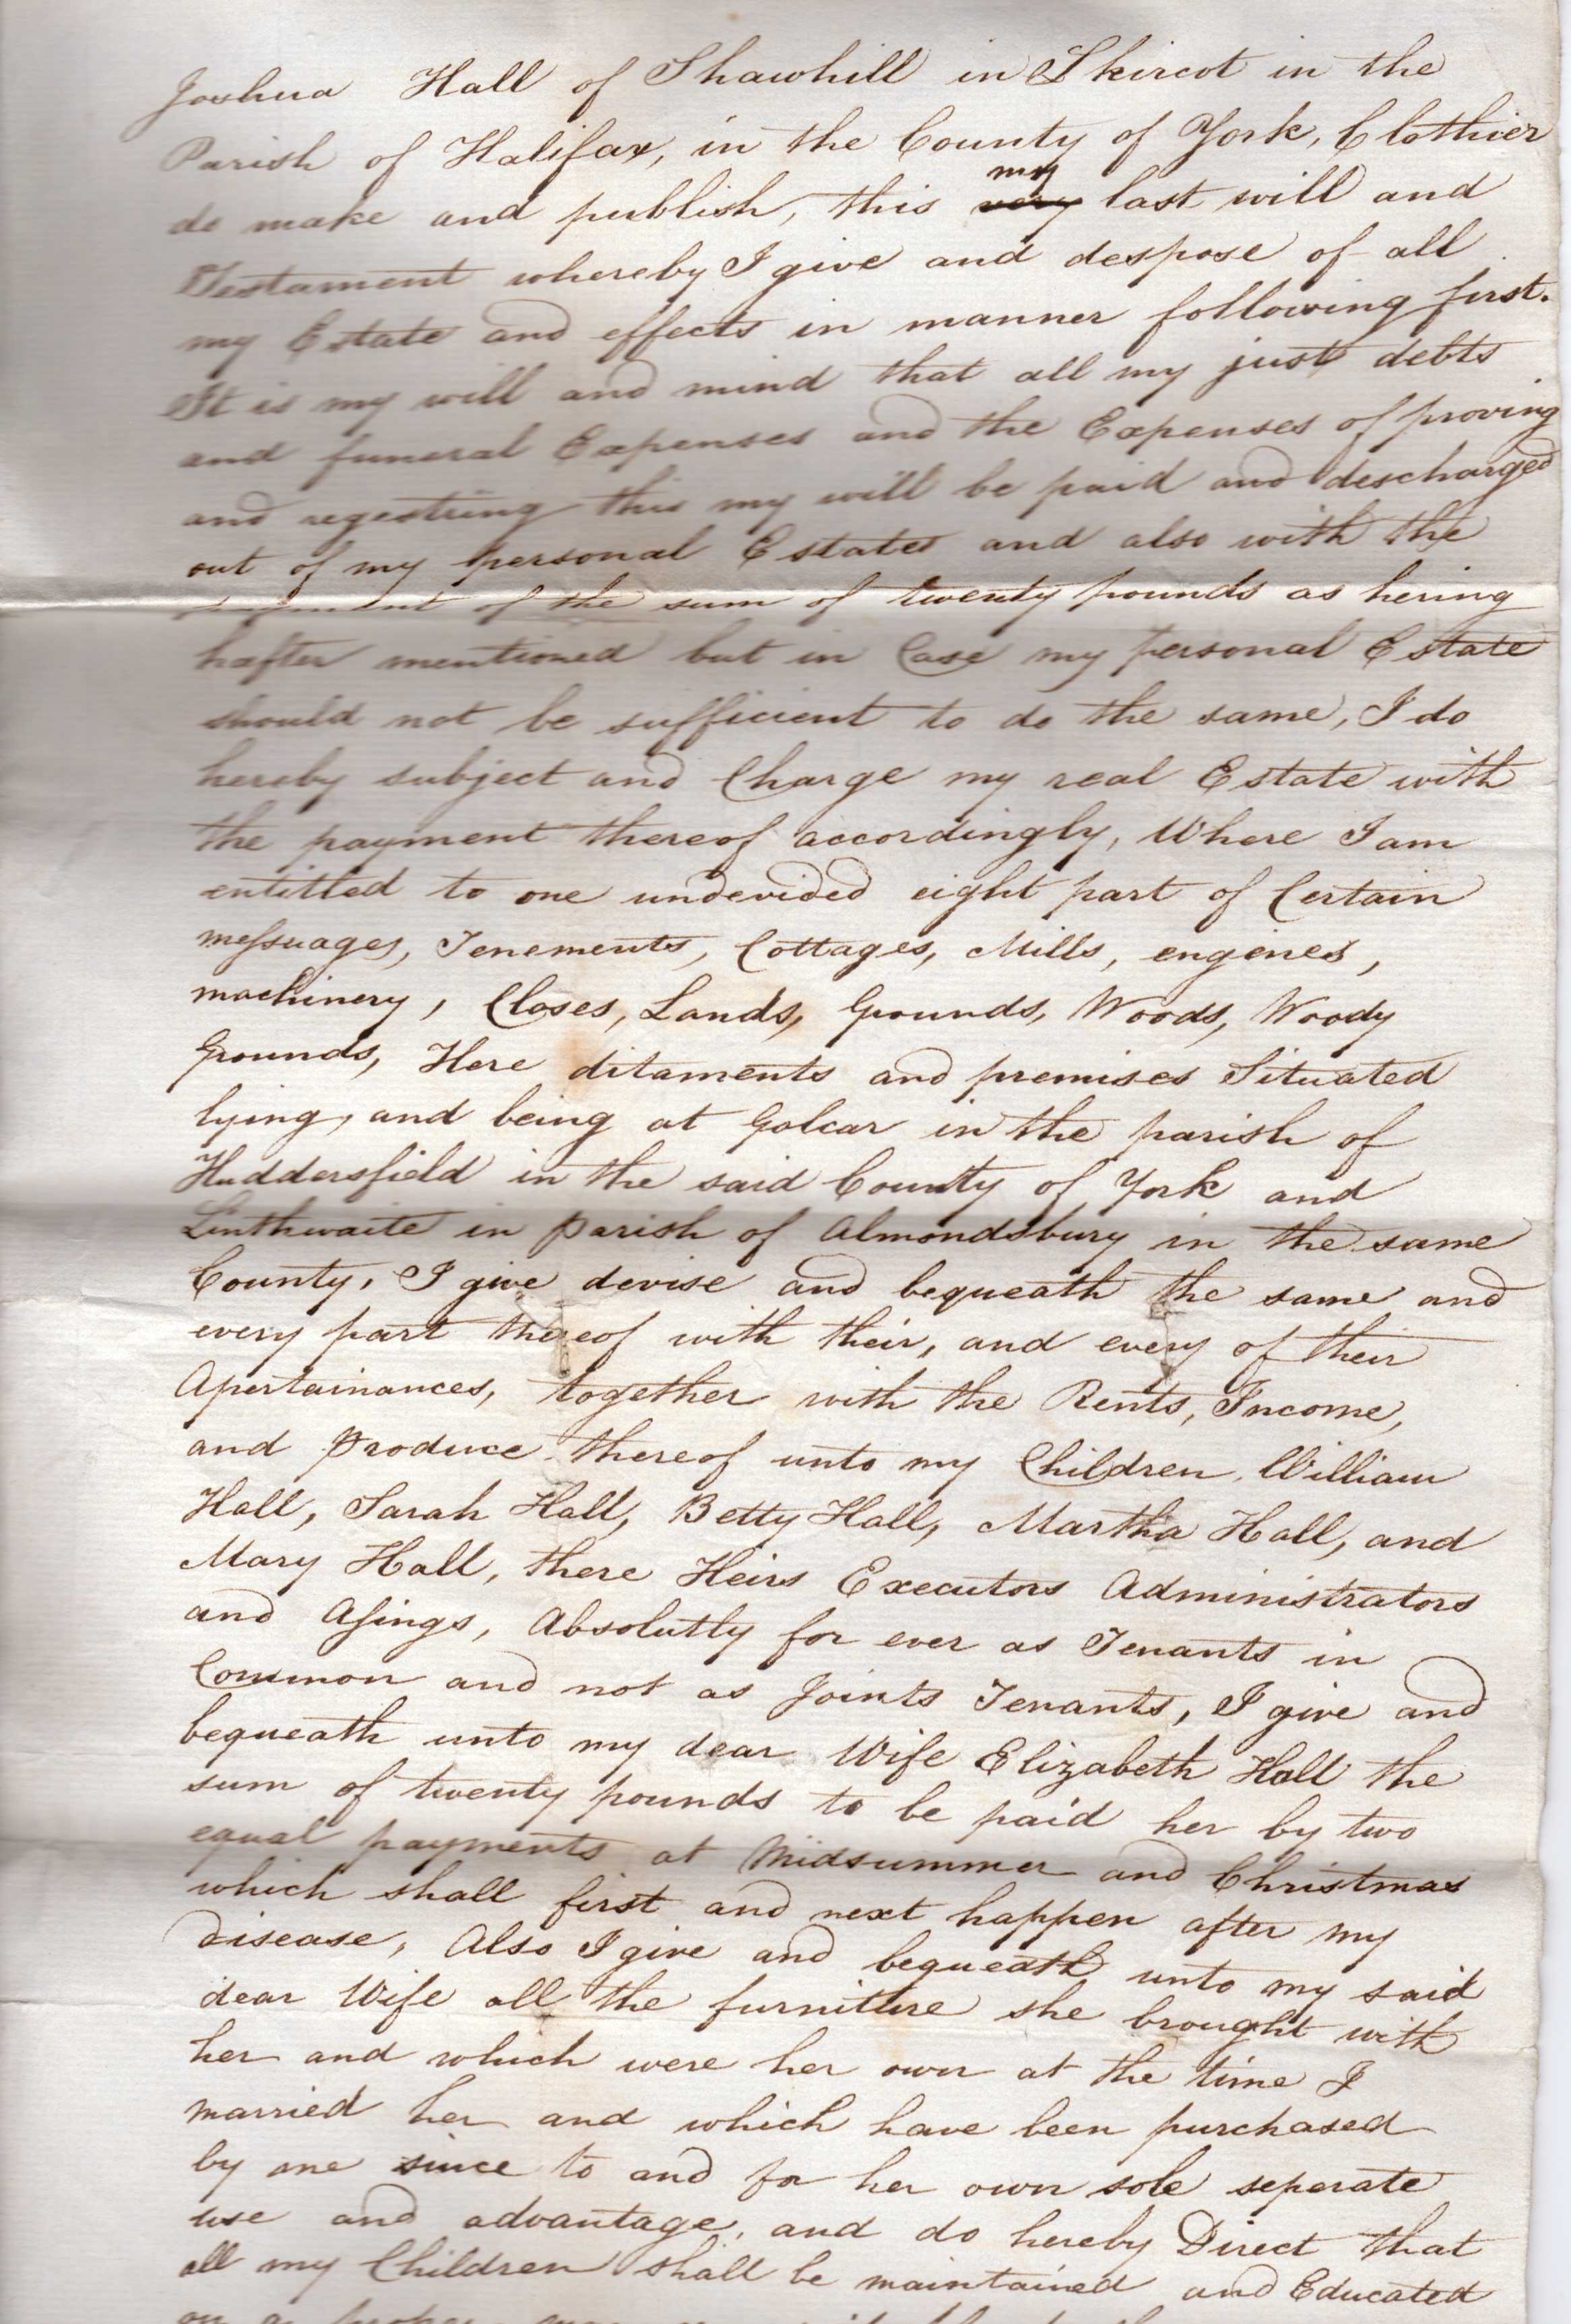 Joshua Hall of Shawhill in Skircot in the
Parish of Halifax, in the County of York, Clothier
do make and publish, this ~~very~~ my last will and
Testament whereby I give and despose of all
my Estate and effects in manner following first.
It is my will and mind that all my just debts
and funeral Expenses and the Expenses of proving
and regestring this my will be paid and descharged
out of my personal Estates and also with the
of the sum of twenty pounds as hering
hafter mentioned but in Case my personal Estate
should not be sufficient to do the same, I do
hereby subject and Charge my real Estate with
the payment thereof accordingly, Where I am
entitled to one undevided eight part of Certain
messuages, Tenements, Cottages, Mills, engenes,
machinery, Closes, Lands, Grounds, Woods, Woody
Grounds, Here ditaments and premises Situated
lying, and being at Golcar in the parish of
Huddersfield in the said County of York and
Linthwaite in parish of Almondsbury in the same
County, I give devise and bequeath the same and
every part thereof with their, and every of their
Apertainances, together with the Rents, Income,
and produce thereof unto my Children, William
Hall, Sarah Hall, Betty Hall, Martha Hall, and
Mary Hall, there Heirs Executors Administrators
and Asings, Absolutly for ever as Tenants in
Common and not as Joints Tenants, I give and
bequeath unto my dear Wife Elizabeth Hall the
sum of twenty pounds to be paid her by two
equal payments at Midsummer and Christmas
which shall first and next happen after my
disease, Also I give and bequeath unto my said
dear Wife all the furniture she brought with
her and which were her own at the time I
married her and which have been purchased
by me since to and for her own sole seperate
use and advantage, and do hereby Direct that
all my Children shall be maintained and Educated